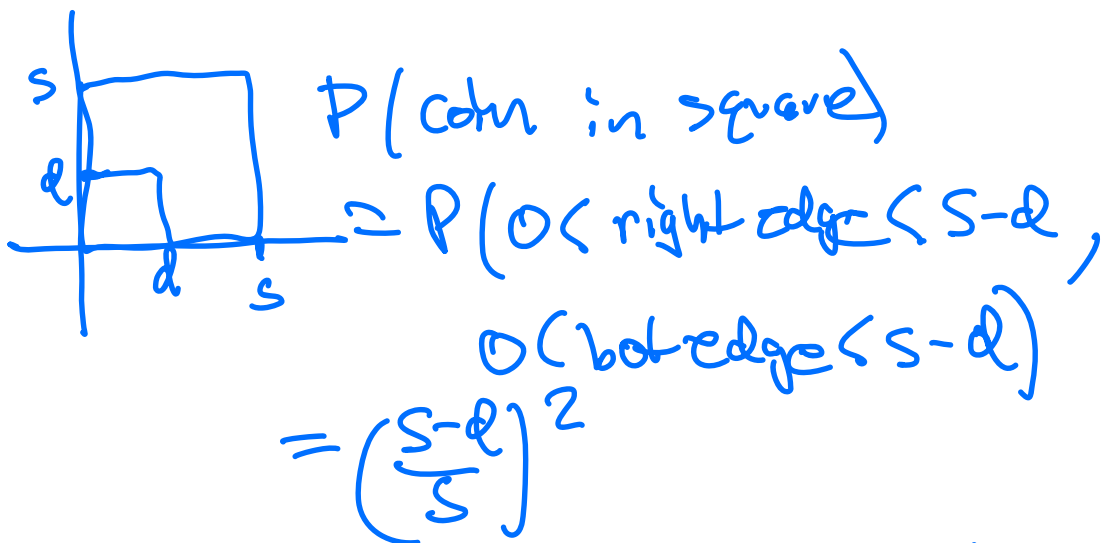 s
P(coin in square)
d
= P(0< right edge < s-d,
d
s
0< bot edge < s-d)
= (s-d/s)^2